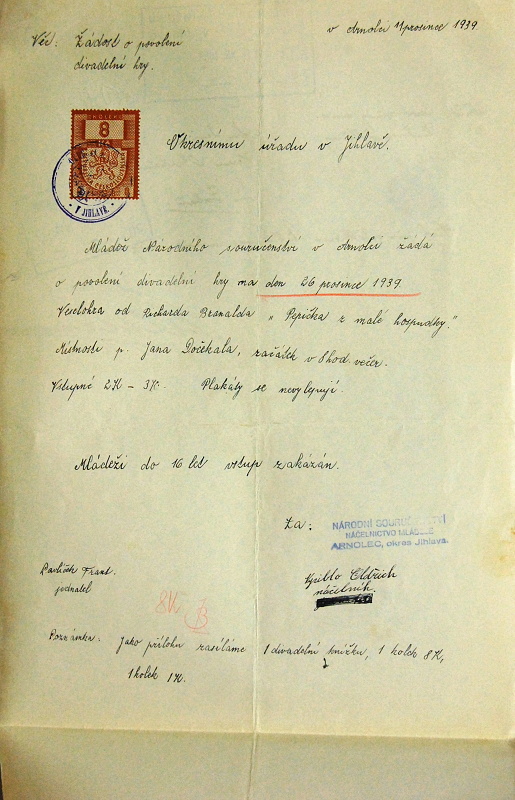 v Arnolci 11 prosince 1939.
Věc: Žádost o povolení
divadelní hry.
8
Okresnímu úřadu v Jihlavě.
V JIHLAVĚ
Mládež Národního souručenství v Arnolci žádá
o povolení divadelní hry na den 26 prosince 1939.
Veselohra od Richarda Branalda „Pepička z malé hospudky."
Místnosti p. Jana Dočekala, začátek v 8 hod večer.
Vstupné 2K – 3K. Plakáty se nevylepují.
Mládeži do 16 let vstup zakázán.
Za:
NÁRODNÍ SOURUČENSTVÍ
NÁČELNICTVO MLÁDEŽE
ARNOLEC, okres Jihlava.
Frant.
jednatel
Oldřich
náčelník.
8K
Poznámka: Jako přílohu zasíláme 1 divadelní knížku, 1 kolek 8K,
1 kolek 1K.